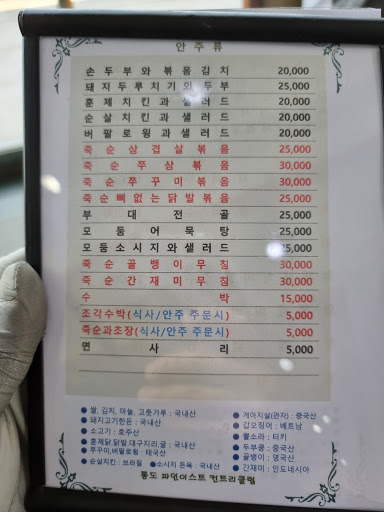 안주류
손두부와볶음김치 20,000
돼지두루치기와두부 25,000
훈제치킨과샐러드 20,000
순살치킨과샐러드 20,000
버팔로윙과샐러드 20,000
죽순삼겹살볶음 25,000
죽순쭈삼볶음 30,000
죽순쭈꾸미볶음 30,000
죽순뼈없는닭발볶음 25,000
부대전골 25,000
모둠어묵탕 25,000
모둠소시지와샐러드 25,000
죽순골뱅이무침 30,000
죽순간재미무침 30,000
수박 15,000
조각수박(식사/안주 주문시) 5,000
죽순과초장(식사/안주 주문시) 5,000
면사리 5,000
● 쌀, 김치, 마늘, 고춧가루 : 국내산
● 돼지고기한돈 : 국내산
● 소고기 : 호주산
● 훈제닭,닭발,대구지리,굴 : 국내산
● 쭈꾸미,버팔로윙 : 태국산
● 순살치킨 : 브라질 ●소시지 돈육 : 국내산
● 게아지살(관자) : 중국산
● 갑오징어 : 베트남
● 뿔소라 : 터키
● 두부콩 : 중국산
● 골뱅이 : 영국산
● 간재미 : 인도네시아
통도 파인이스트 컨트리클럽